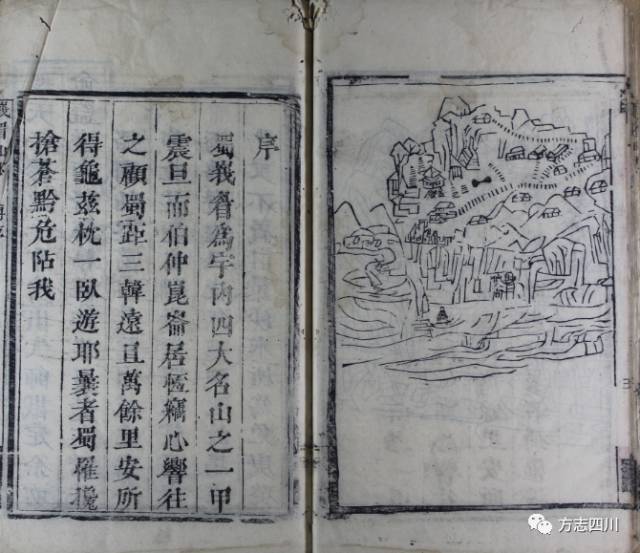 序
蜀峩睂爲宇內四大名山之一甲
震旦而伯仲崑崙居恆竊心嚮往
之顧蜀距三韓遠且萬餘里安所
得龜茲枕一臥遊耶曩者蜀罹攙
搶蒼黔危阽我
方志四川